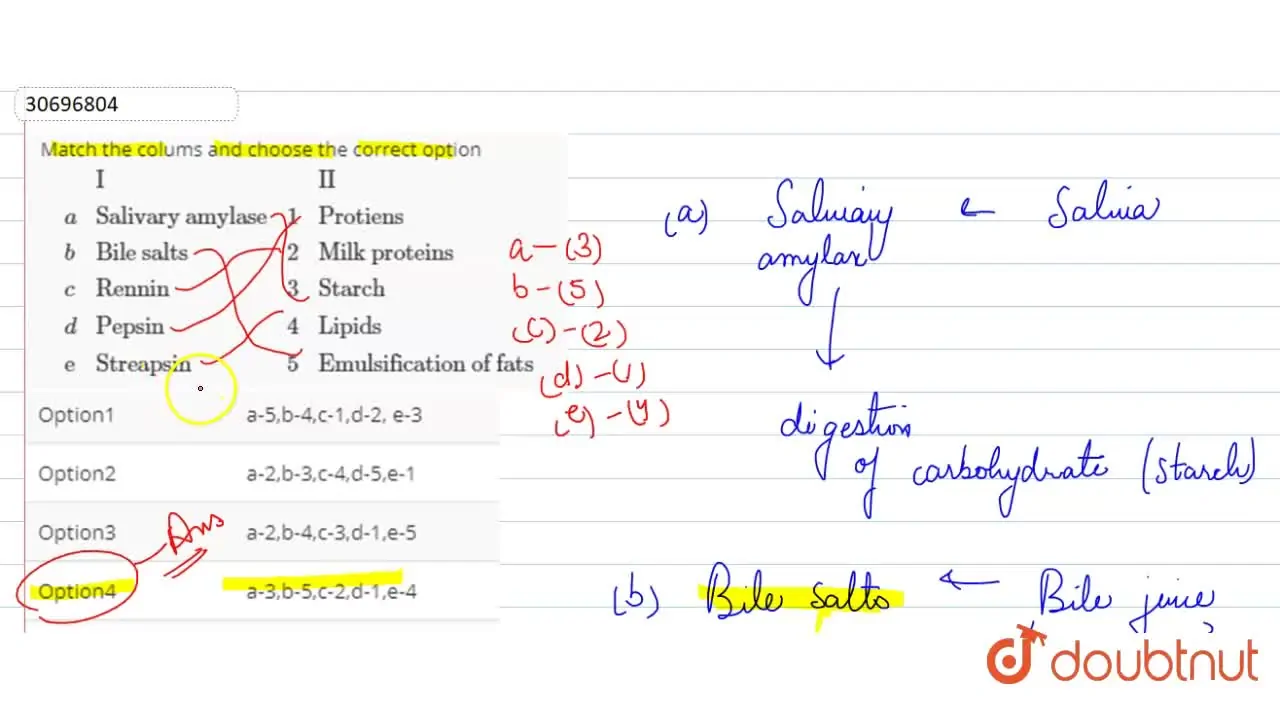 30696804
Match the colums and choose the correct option
I II
a Salivary amylase 1 Protiens
b Bile salts 2 Milk proteins
c Rennin 3 Starch
d Pepsin 4 Lipids
e Streapsin 5 Emulsification of fats
Option1 a-5,b-4,c-1,d-2, e-3
Option2 a-2,b-3,c-4,d-5,e-1
Option3 a-2,b-4,c-3,d-1,e-5
Option4 a-3,b-5,c-2,d-1,e-4
Ans
a - (3)
b - (5)
(c) - (2)
(d) - (1)
(e) - (4)
(a) Salivary ← Saliva
amylase
↓
digestion
of carbohydrate (starch)
(b) Bile salts ← Bile juice
doubtnut